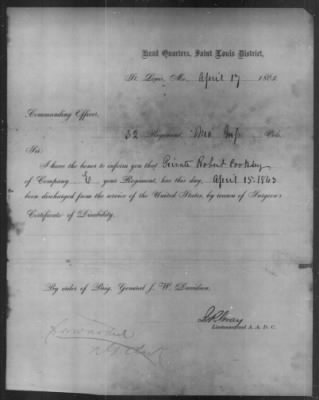 Head Quarters, Saint Louis District,
St. Louis, Mo., April 17 1863.
Commanding Officer,
32 Regiment, Mo Inf. Vols.
Sir:
I have the honor to inform you that Private Robert Cooksey
of Company E your Regiment, has this day, April 15. 1863
been discharged from the service of the United States, by reason of Surgeon's
Certificate of Disability.
By order of Brig. General J. W. Davidson,
Lieutenant and A. A. D. C.
Forwarded